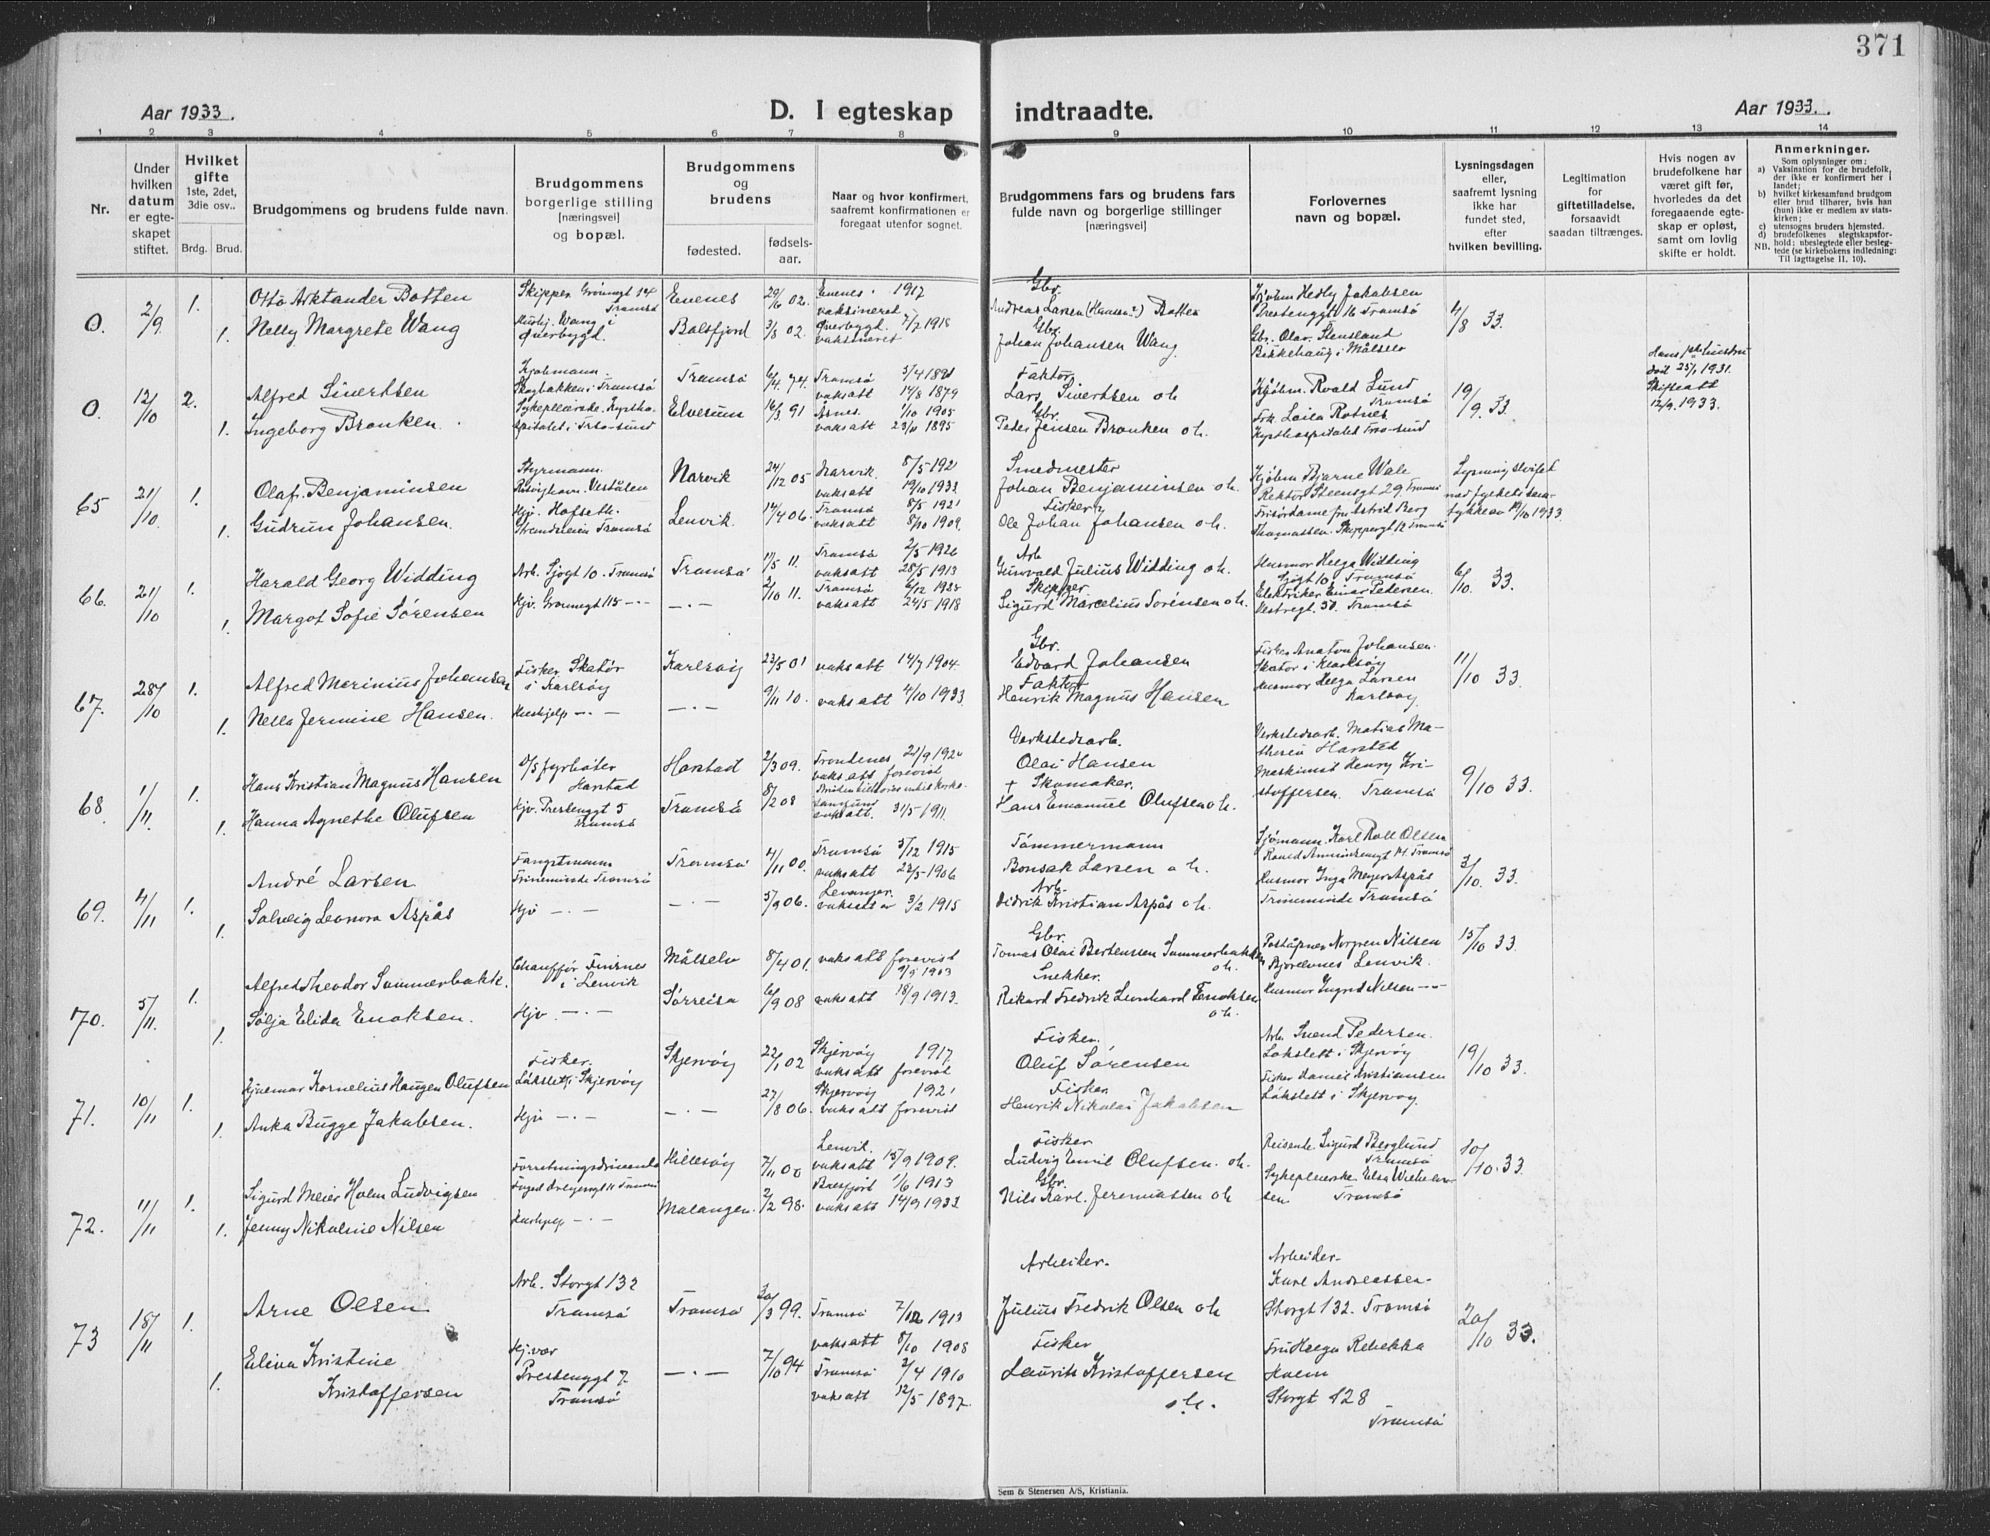 371
Aar 1933.
D. I egteskap indtraadte.
Aar 1933.
1 2 3 4 5 6 7 8 9 10 11 12 13 14
Nr.
Under hvilken datum er egte-skapet stiftet.
Hvilket gifte
1ste, 2det, 3die osv..
Brdg. Brud.
Brudgommens og brudens fulde navn.
Brudgommens borgerlige stilling [næringsvei] og bopæl.
Brudgommens og brudens
fødested.
fødsels-aar.
Naar og hvor konfirmert, saafremt konfirmationen er foregaat utenfor sognet.
Brudgommens fars og brudens fars fulde navn og borgerlige stillinger [næringsvei]
Forlovernes navn og bopæl.
Lysningsdagen eller, saafremt lysning ikke har fundet sted, efter hvilken bevilling.
Legitimation for giftetilladelse, forsaavidt saadan tiltrænges.
Hvis nogen av brudefolkene har været gift før, hvorledes da det foregaaende egte-skap er opløst, samt om lovlig skifte er holdt.
Anmerkninger.
Som oplysninger om:
a) Vaksination for de brudefolk, der ikke er konfirmert her i landet;
b) hvilket kirkesamfund brudgom eller brud tilhører, hvis han (hun) ikke er medlem av stats-kirken;
c) utensogns bruders hjemsted.
d) brudefolkenes slegtskapsfor-hold: ubeslegtede eller besleg-tede (se kirkebokens indledning:
NB. Til iagttagelse II. 10).
0. 2/9 1. Otto Arktander Botten
Skipper Grønnegt 14 Tromsø
Evenes 29/10 02. Evenes 1917
vaksinert
Gbr.
Andreas Larsen (Hansen?) Botten
Hedly Jakobsen
Prestenggt 16 Tromsø
4/8 33.
1. Nelly Margrete Wang
Hushj. Wang i Øverbygd.
Balsfjord 3/8 02. Øverbygd. 7/7 1918
vaksineret
Gbr.
Johan Johansen Wang
Gbr. Olav Stensland
Birkehaug i Målselv
0. 12/10 2. Alfred Sivertsen
Kjøbmann
Skogbakken i Tromsø
Tromsø 6/4 74. Tromsø
vaksatt 14/8 1879
Faktor
Lars Sivertsen oh
Kjøbm. Roald Lund
Tromsø
19/9 33.
Hans 1ste hustru
død 25/1 1931.
Skifteatt
12/9 1933.
1. Ingeborg Bronken.
Sykepleierske. Kysthospitalet i Tromsøsund
Elverum 16/3 91 Åsnes. 1/10 1905
vaksatt 23/11 1895
Gbr.
Peder Jensen Bronken oh.
Frk. Laila Rotnes
Kysthospitalet Tromsøsund
65 21/10 1. Olaf Benjaminsen
Styrmann.
Narvik 24/12 05 Narvik 8/5 1921
vaksatt 19/10 1933
Smedmester
Johan Benjaminsen oh.
Kjøbm Bjarne Wale
Rektor Steensgt 29 Tromsø
1. Gudrun Johansen.
Hjv. Hofseth.
Strandveien Tromsø
Lenvik. 14/4 06. Tromsø 8/5 1921
vaksatt 8/10 1909.
Fisker
Ole Johan Johansen oh.
Frisørdame fru Astrid Berg
Thomassen. Skippergt 12 Tromsø
66. 21/10 1. Harald Georg Widding
Arb. Sjøgt 10. Tromsø
Tromsø 17/5 11. Tromsø 2/5 1926
vaksatt 28/5 1913
Arb
Julius Widding oh.
Husmor Helga Widding
Sjøgt 10. Tromsø
6/10. 33.
1. Margot Sofie Sørensen
Hjv. Grønnegt 115 -.-
-.- 2/10 11. Tromsø
vaksatt 24/5 1918
Skipper
Sigurd Marcelius Sørensen oh.
Elektriker Einar Pedersen
Vestregt. 50. Tromsø
67. 28/10 1. Alfred Merinius Johansen
Fisker Skatør
i Karlsøy
Karlsøy 23/5 01 vaksatt 14/7 1904.
Gbr.
Edvard Johansen
Fisker Anaton Johansen.
Skatør i Karlsøy
11/10 33.
1. Nella Jermine Hansen.
Hushjelp -.-
-.- 9/11 10. vaksatt 4/10 1933
Faktor
Henrik Magnus Hansen
Husmor Helga Larsen
Karlsøy
68. 1/11. 1. Hans Kristian Magnus Hansen
D/S fyrbøter
Harstad
Harstad 2/3 09. Trondenes 21/9 1924
vaksatt forevist
Verkstedsarb.
Olai Hansen
Verkstedsarb. Matias Ma-
thesen Harstad
9/10 33.
1. Hanna Agnethe Olufsen
Hjv. Prestenggt 5
Tromsø
Tromsø 8/2 08
vaksatt. 31/5 1911.
+ Skomaker.
Hans Emanuel Olufsen oh.
Maskinist Henry Kri-
stoffersen. Tromsø
69. 4/11 1. André Larsen
Fangstmann
Tromsø
Tromsø 4/11 00. Tromsø 3/12 1915
vaksatt 22/5 1906
Tømmermann
Bonsak Larsen oh.
Sjømann. Karl Roll Olsen
Roald Amundsengt 14 Tromsø
3/10. 33.
1. Solveig Leonora Aspås
Hjv -.-
-.- 5/9 06. Levanger.
vaksatt 3/2 1915
Arb.
Didrik Kristian Aspås oh.
Husmor Inga Meyer Aspås
Tromsø
70. 5/11. 1. Alfred Theodor Sommerbakk.
Chauffør Finsnes
i Lenvik
Målselv 8/4 01. vaksatt forevist
9/9 1903
Gbr.
Tomas Olai Berteussen Sommerbakken
oh.
Poståpner Norgren Nilsen
Gjorelvnes Lenvik.
15/10 33.
1. Sølja Elida Enoksen.
Hjv -.-
Sørreisa 6/9 08 vaksatt 18/9 1913.
Snekker.
Rikard Fredrik Leonhard Enoksen
oh.
Husmor Ingrid Nilsen -"-
71. 10/11 1. Hjalmar Kornelius Haugen Olufsen
Fisker.
Lökslett i Skjervøy
Skjervøy 22/1 02 Skjervøy 1917
vaksatt forevist
Fisker.
Oluf Sørensen
Arb. Svend Pedersen.
Lökslett i Skjervøy
19/10 33.
1. Anka Bugge Jakobsen.
Hjv -.-
-.- 27/8 06. Skjervøy 1921
vaksatt forevist
Fisker
Henrik Nikolai Jakobsen
Fisker Daniel Kristiansen
Lökslett i Skjervøy.
72. 11/11 1. Sigurd Meier Holm Ludvigsen
Forretningsdrivende
Hillesøy 7/11 00 Lenvik.
vaksatt 15/9 1909.
Fisker
Ludvig Emil Olufsen. oh.
Reisende Sigurd Berglund
Tromsø
10/10. 33.
1. Jenny Nikoline Nilsen
Hushjelp -.-
Malangen. 2/2 98. Balsfjord 1/6 1913
vaksatt 14/9 1933
Gbr.
Nils Karl Jeremiassen oh
Sykepleierske Elsa Wilhelm-
sen Tromsø
73 18/11 1. Arne Olsen
Arb. Storgt 132
Tromsø
Tromsø 30/3 99. Tromsø 7/12 1913
vaksatt 8/10 1908
Arbeider.
Julius Fredrik Olsen oh
Arbeider
Karl Andreassen
Storgt 132. Tromsø
20/10 33.
1. Elina Kristine
Kristoffersen
Hj.vær
Prestenggt 7.
Tromsø
-.- 7/10 94 Tromsø 2/4 1910
vaksatt 12/5 1897.
Fisker
Laurits Kristoffersen
oh.
Fru Helga Rebekka
Holm
Storgt 128
Tromsø
Sem & Stenersen A/S, Kristiania.